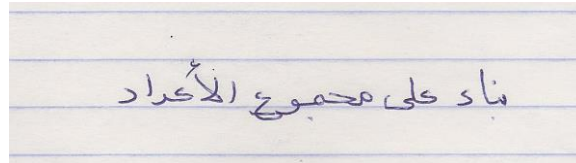 بناء على مجموع الأعداد